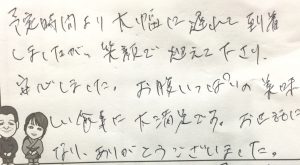 予定時間より大幅に遅れて到着
しましたが、笑顔で迎えて下さり、
安心しました。お腹いっぱいの美味
しい食事に大満足です。お世話に
なり、ありがとうございました。